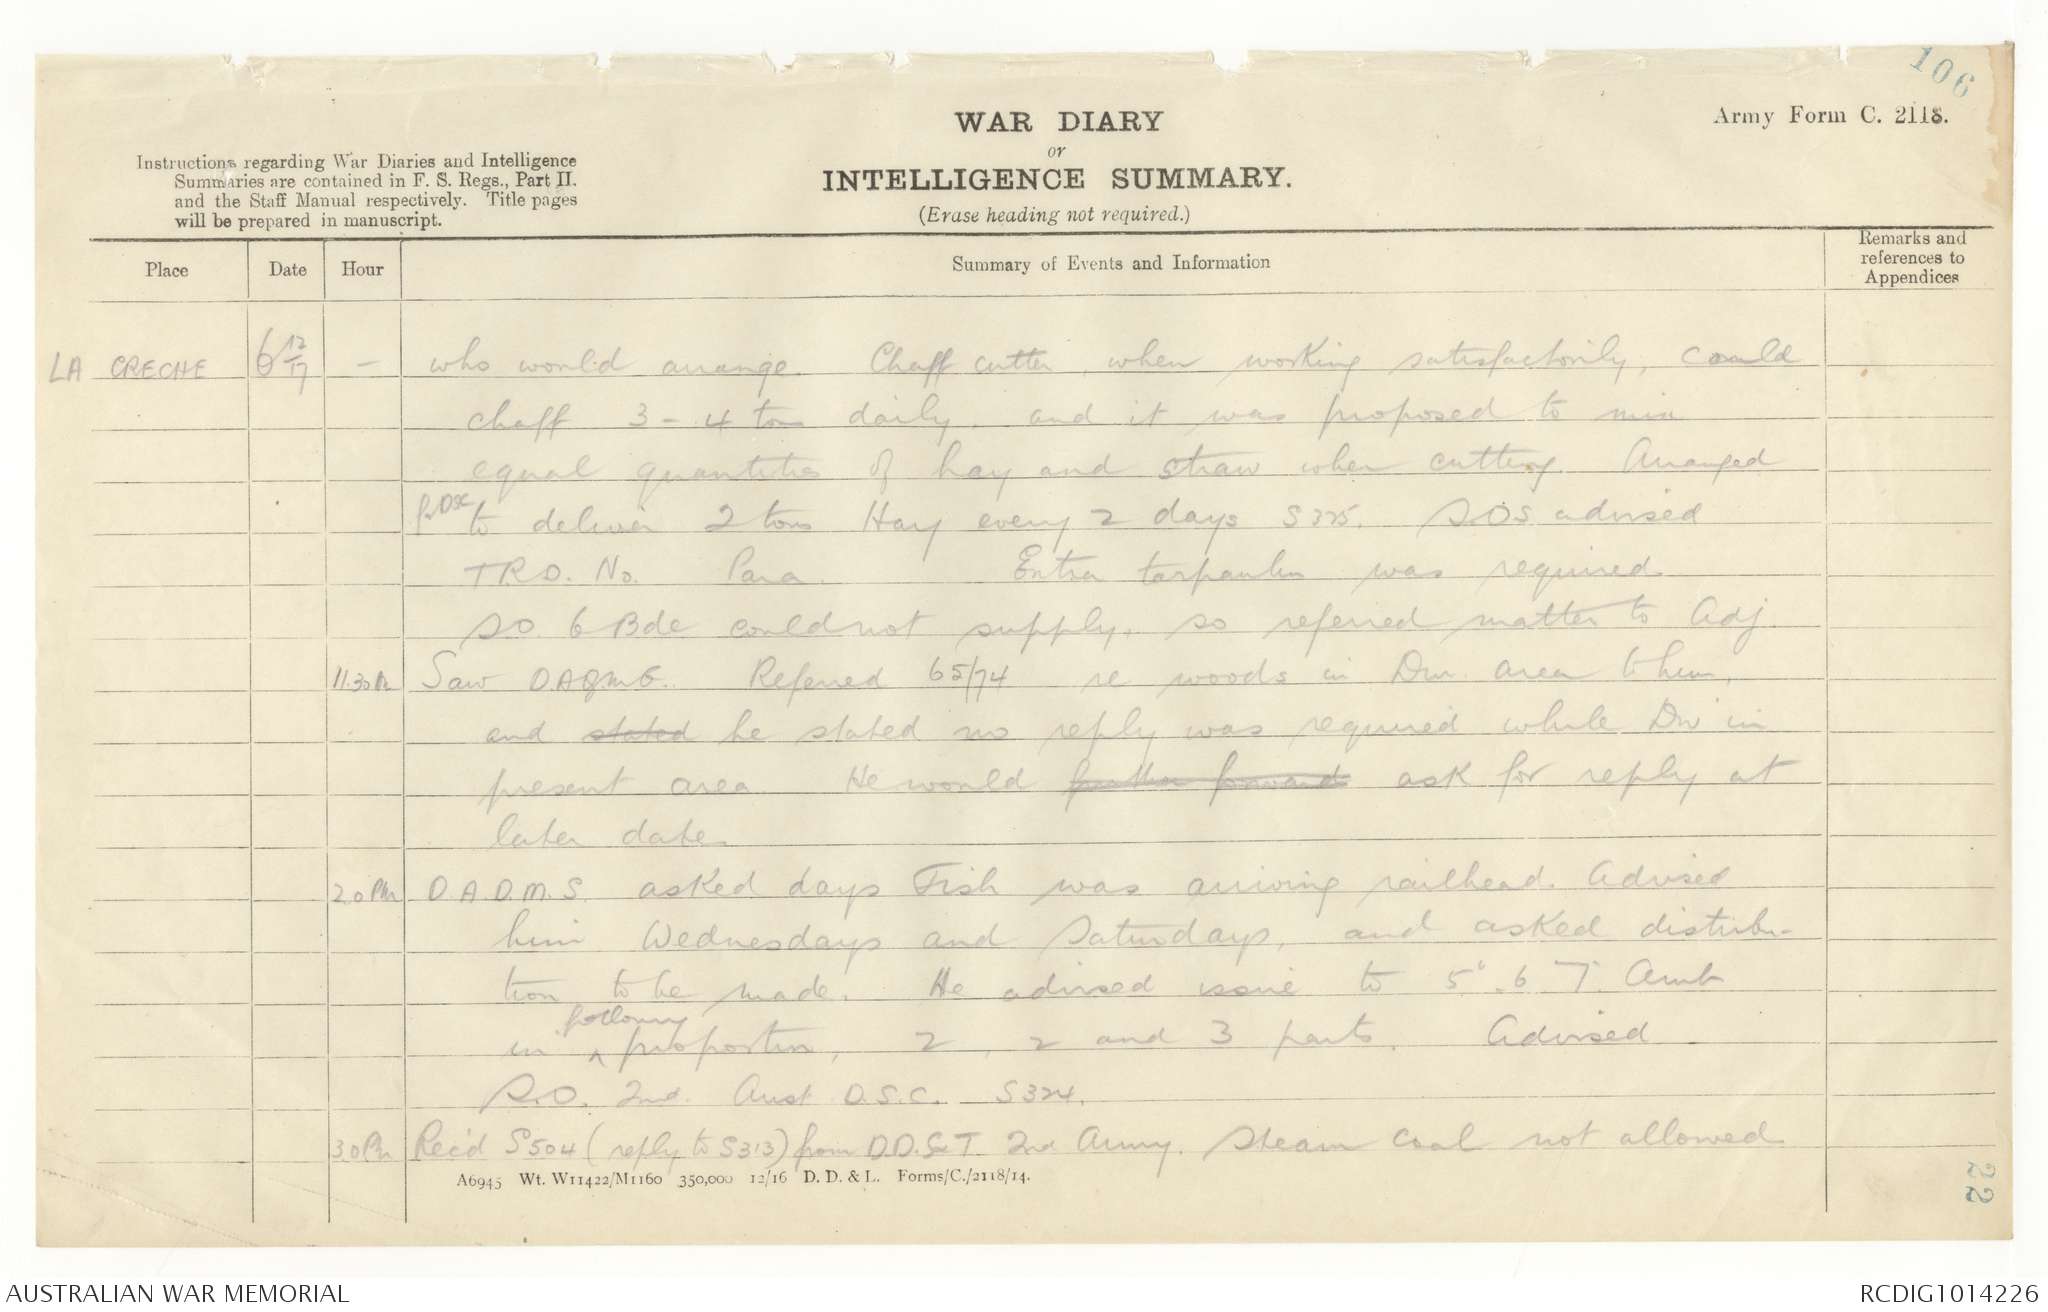 106
WAR DIARY
or
INTELLIGENCE SUMMARY.
(Erase heading not required.)
Army Form C. 2118.
Instructions regarding War Diaries and Intelligence
Summaries are contained in F. S. Regs., Part II.
and the Staff Manual respectively. Title pages
will be prepared in manuscript.
Place Date Hour Summary of Events and Information Remarks and references to Appendices
LA CRECHE 6 12/17 — who would arrange. Chaff cutter, when working satisfactorily, could
chaff 3-4 tons daily, and it was proposed to mix
equal quantities of hay and straw when cutting. Arranged
to deliver 2 tons Hay every 2 days S325. S.O.S. advised
T.R.O. No. Para Extra tarpaulin was required
S.O. 6 Bde could not supply, so referred matter to Adj.
11.30 Saw DAQMG. Referred 65/74 re woods in Div. area to him,
and stated he stated no reply was required while Div in
present area He would further forward ask for reply at
later date.
2.0 PM D.A.D.M.S. asked days Fish was arriving railhead. Advised
him Wednesdays and Saturdays, and asked distribu-
tion to be made. He advised issue to 5, 6 7. Amb
in following proportion, 2, 2 and 3 parts. Advised
S.O. 2nd. Aust D.S.C. S324.
3.0 PM Rec'd S504 (reply to S313) from D.D.S&T. 2nd Army. Steam coal not allowed
A6945 Wt. W11422/M1160 350,000 12/16 D. D. & L. Forms/C./2118/14.
22
AUSTRALIAN WAR MEMORIAL
RCDIG1014226